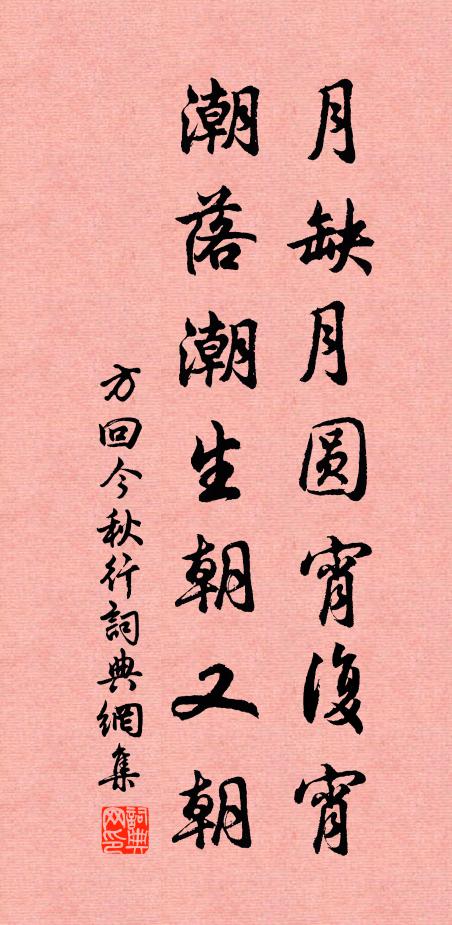 月缺月圆宵復宵
潮落潮生朝又朝
方回今秋行詞典網集
詞典網印